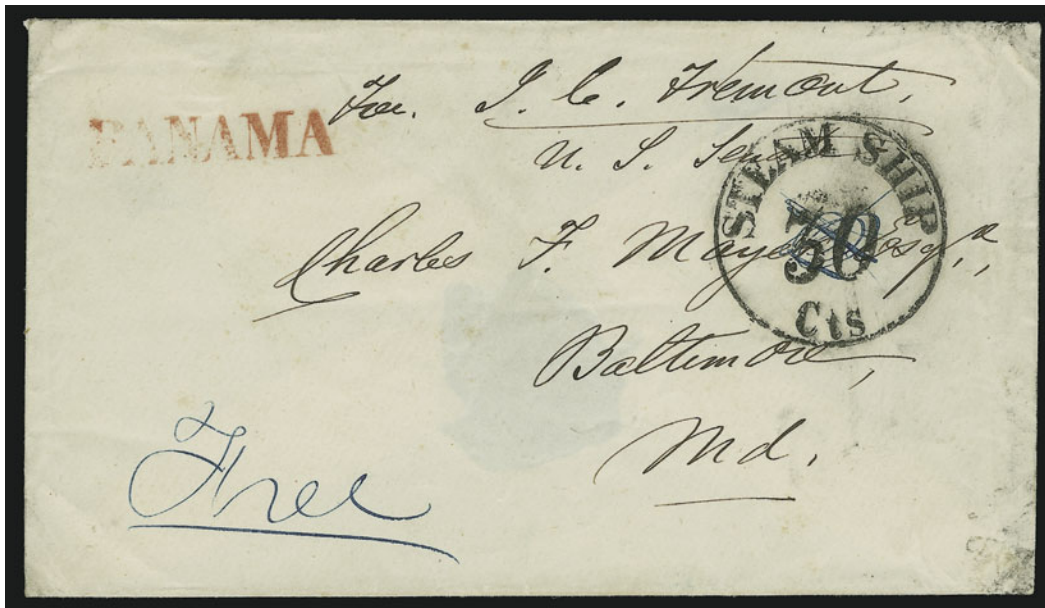 PANAMA
Free. J. C. Fremont,
U. S. Senate
STEAM SHIP
30
Cts
Charles F. Mayer Esqr.,
Baltimore,
Md.
Free